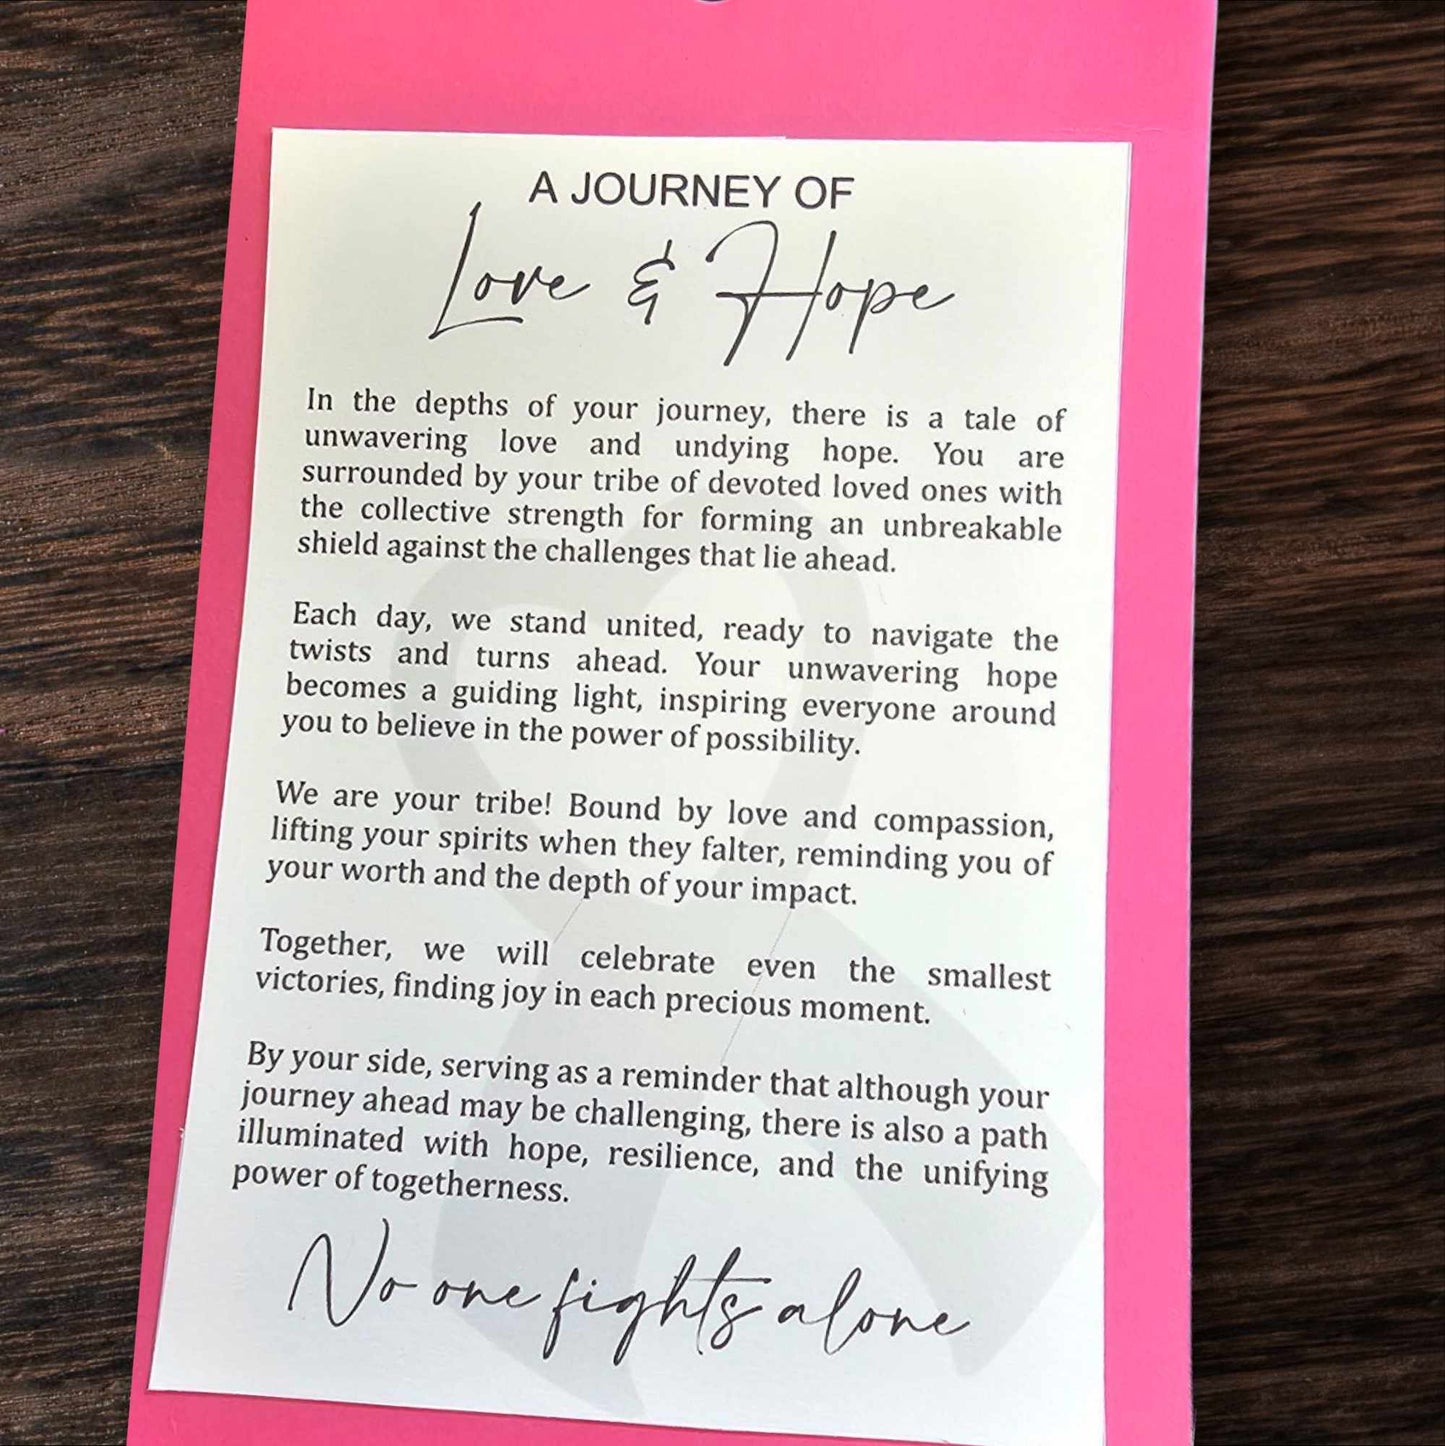 A JOURNEY OF
Love & Hope
In the depths of your journey, there is a tale of
unwavering love and undying hope. You are
surrounded by your tribe of devoted loved ones with
the collective strength for forming an unbreakable
shield against the challenges that lie ahead.
Each day, we stand united, ready to navigate the
twists and turns ahead. Your unwavering hope
becomes a guiding light, inspiring everyone around
you to believe in the power of possibility.
We are your tribe! Bound by love and compassion,
lifting your spirits when they falter, reminding you of
your worth and the depth of your impact.
Together, we will celebrate even the smallest
victories, finding joy in each precious moment.
By your side, serving as a reminder that although your
journey ahead may be challenging, there is also a path
illuminated with hope, resilience, and the unifying
power of togetherness.
No one fights alone